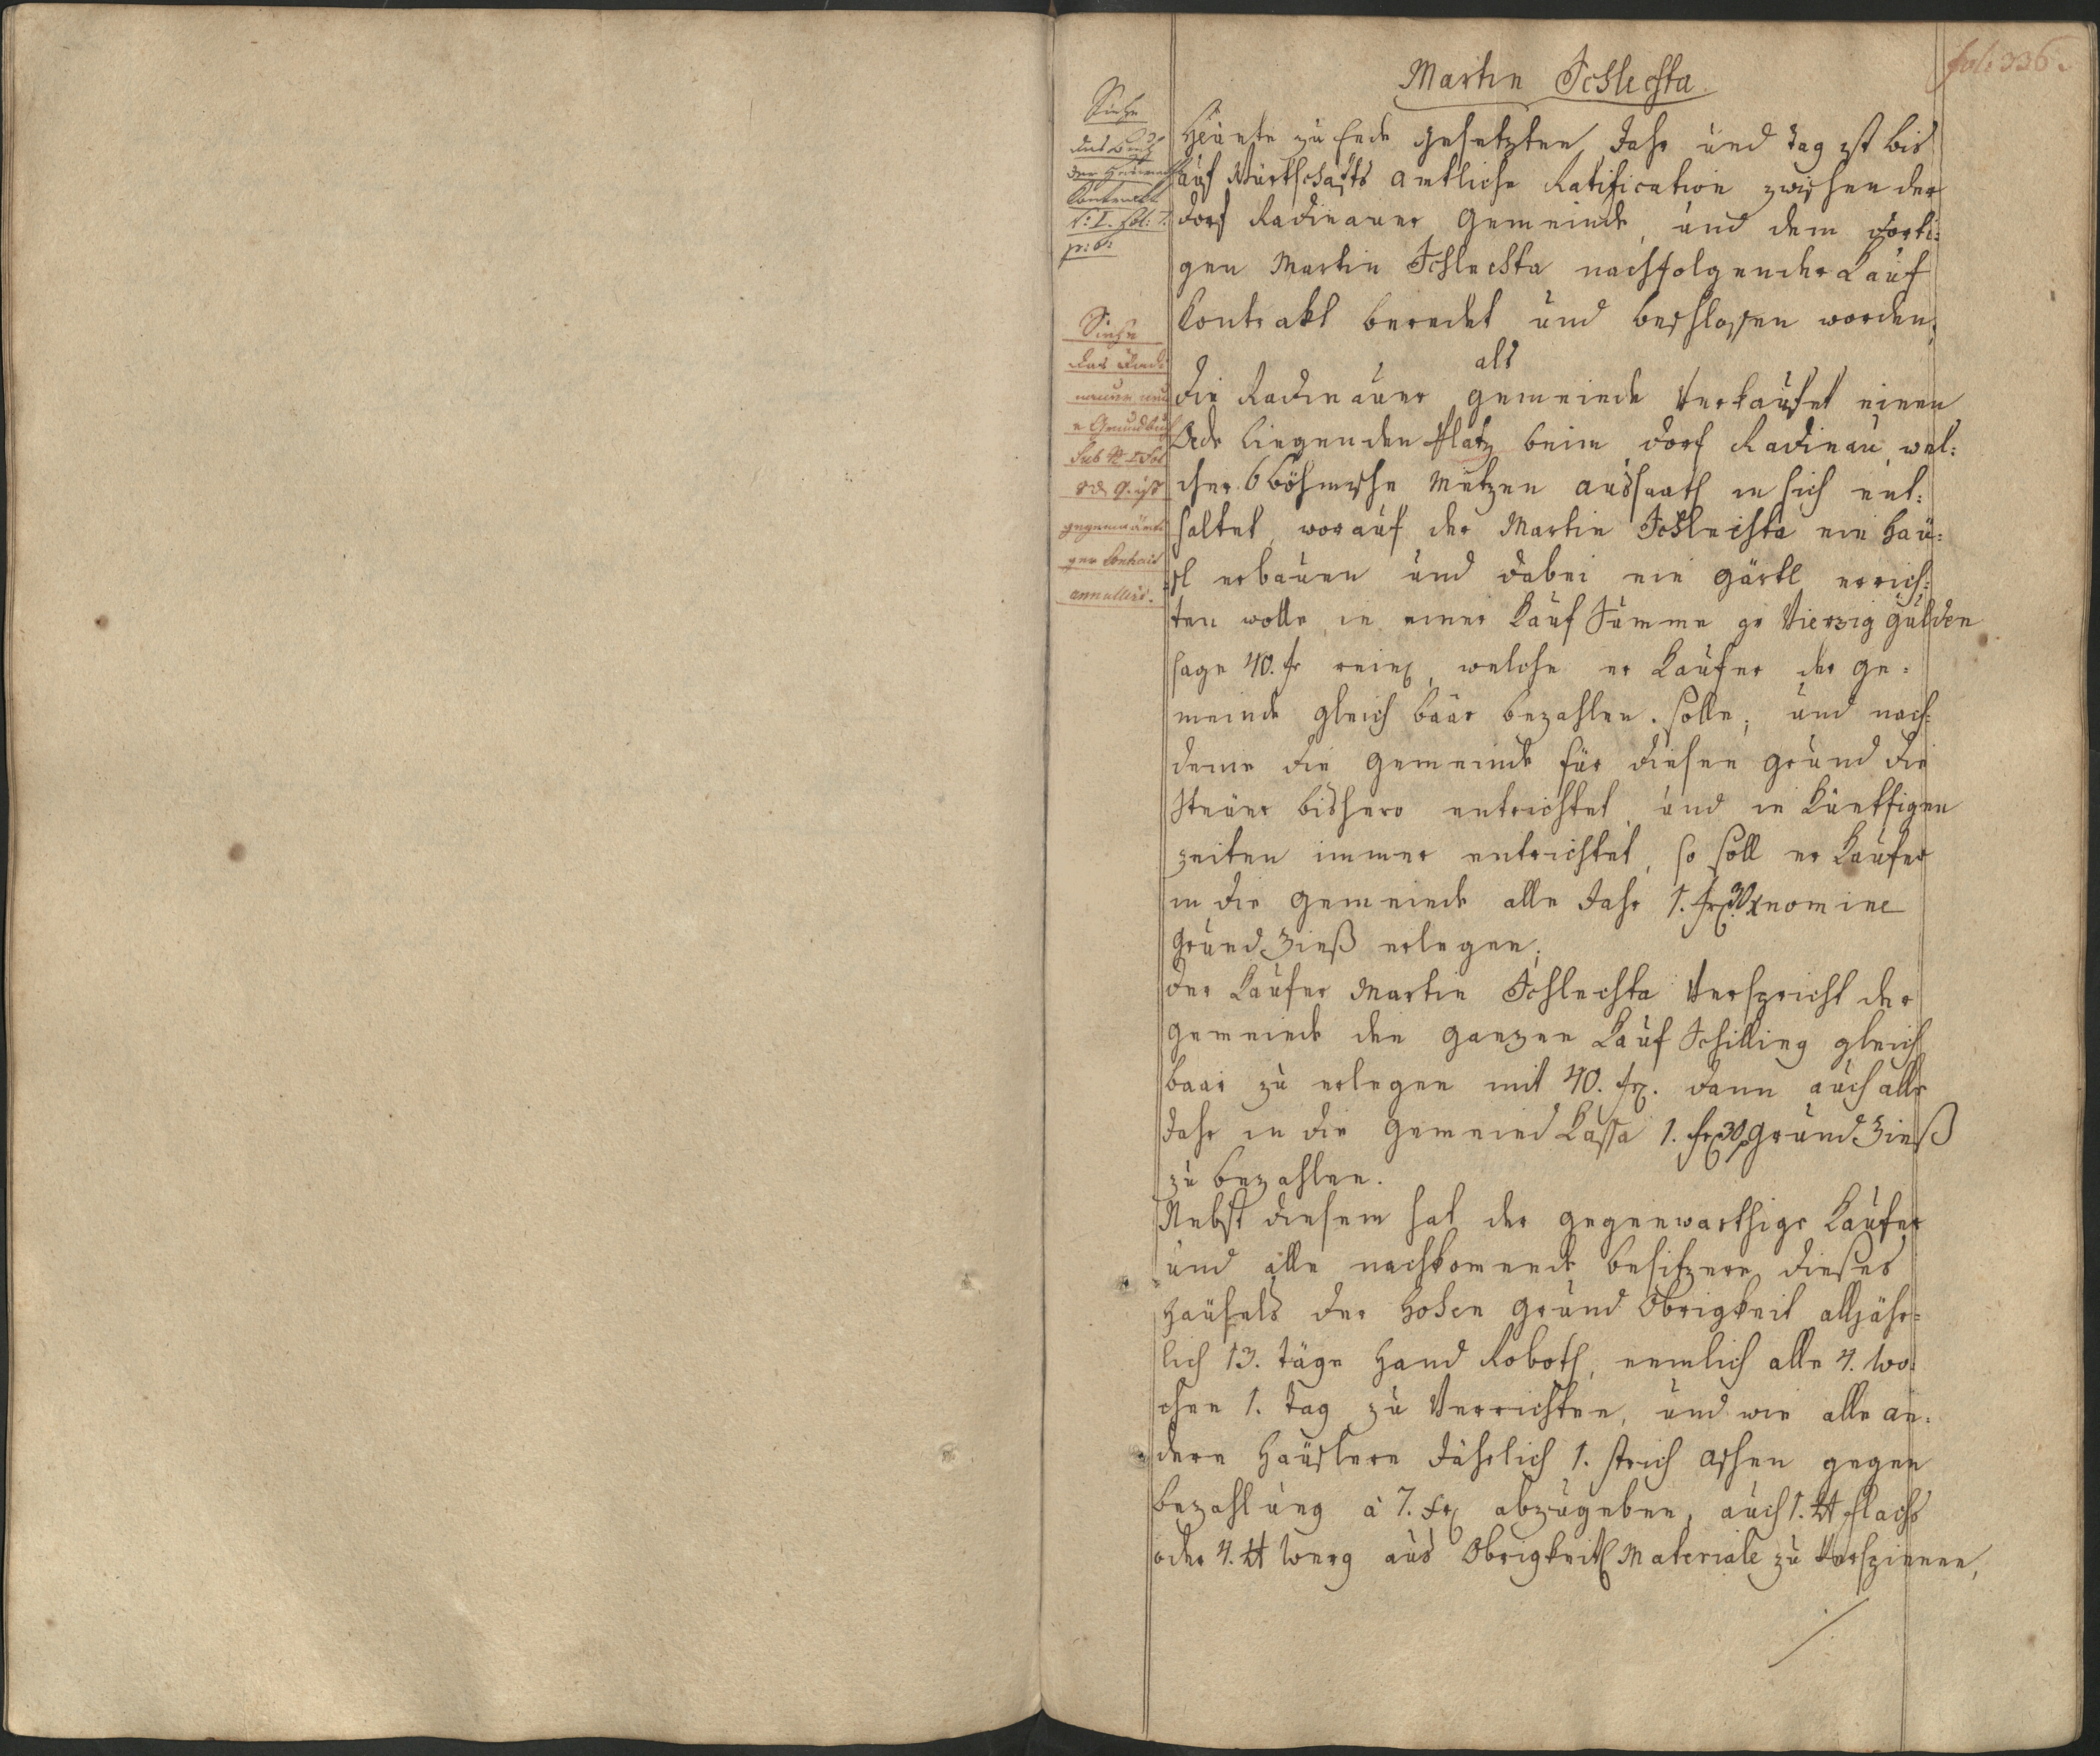 fol: 336.
Martin Schlechta
Siehe
das Buch
der Heuraths
Contrakte
t: I. fol: 7.
p: 6:
Siehe
das Radi
nauer neu
e Grundbuch
Sub # I. Fol
gegenwärti
ger Contrakt
annullirt.
Heünte zu Ende gesetzten Jahr und Tag ist bis
auf Würtschafts amtliche Ratification zwischen der
Dorf Radinauer Gemeinde, und dem dorti:
gen Martin Schlechta nachfolgender Kauf
Contrakt beredet und beschlossen worden,
als
Die Radinauer Gemeinde Verkaufet einen
Oede liegenden Platz beim Dorf Radinau, wel:
cher 6 böhmische Metzen aussaath in sich ent:
haltet, worauf der Martin Schlechta ein Häu:
sl erbauen und dabei ein Gärtl errich:
ten wolle, in einer Kauf Summe pr Vierzig Gulden
sage 40. fr rein, welche er Kaufer der Ge:
meinde gleich baar bezahlen solle; und nach:
deme die Gemeinde für diesen Grund die
Steüer bishero entrichtet, und in Künftigen
zeiten immer entrichtet, so soll er Kaufer
in die Gemeinde alle Jahr 1. fr 30 x nomine
Grund Zinß erlegen;
Der Kaufer Martin Schlechta Verspricht der
Gemeinde den ganzen Kauf Schilling gleich
baar zu erlegen mit 40. fr. dann auch alle
Jahr in die Gemeind Kassa 1. fr 30 x Grund Zinß
zu bezahlen.
Nebst diesem hat der gegenwarthige Kaufer
und alle nachkomende besitzere dieses
Haüsels der Hohen Grund Obrigkeit alljähr=
lich 13. täge Hand Roboth, nemlich alle 4. Wo:
chen 1. Tag zu Verrichten, und wie alle an:
dere Haüslere Jährlich 1. strich Aschen gegen
bezahlung à 7. xr abzugeben, auch 1. ℔ flachs
oder 4. ℔ Werg aus Obrigkeitl Materiale zu Verspinnen,